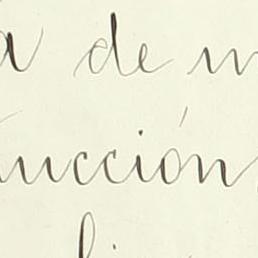 a de m
ucción,